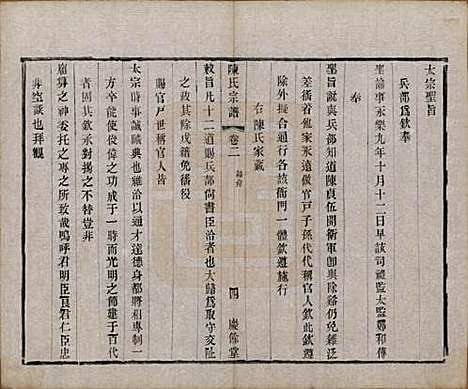 太宗聖旨
兵部爲欽奉
聖諭事永樂九年十月十二日早該司禮監太監鄭和傳
奉
聖旨說與兵部知道陳貞伍開衛軍卽與除豁仍免雜泛
差徭着他家永遠做官戸子孫代代稱官人欽此欽遵
除外擬合通行各該衙門一體欽遵施行
右陳氏家藏
陳氏宗譜
卷二
四
慶餘堂
敕旨凡十二道賜兵部尚書臣洽者也大歸爲取守交趾
之故其除戍籍免徭役
賜官戸世稱官人皆
太宗時事誠曠典也雖洽以通才達德身都將相專制一
方卒能使俊偉之功成于一時而光明之節建于百代
者固其欽承對揚之不替豈非
廟算之神委托之專之所致哉嗚呼君明臣良君仁臣忠
非空談也拜觀